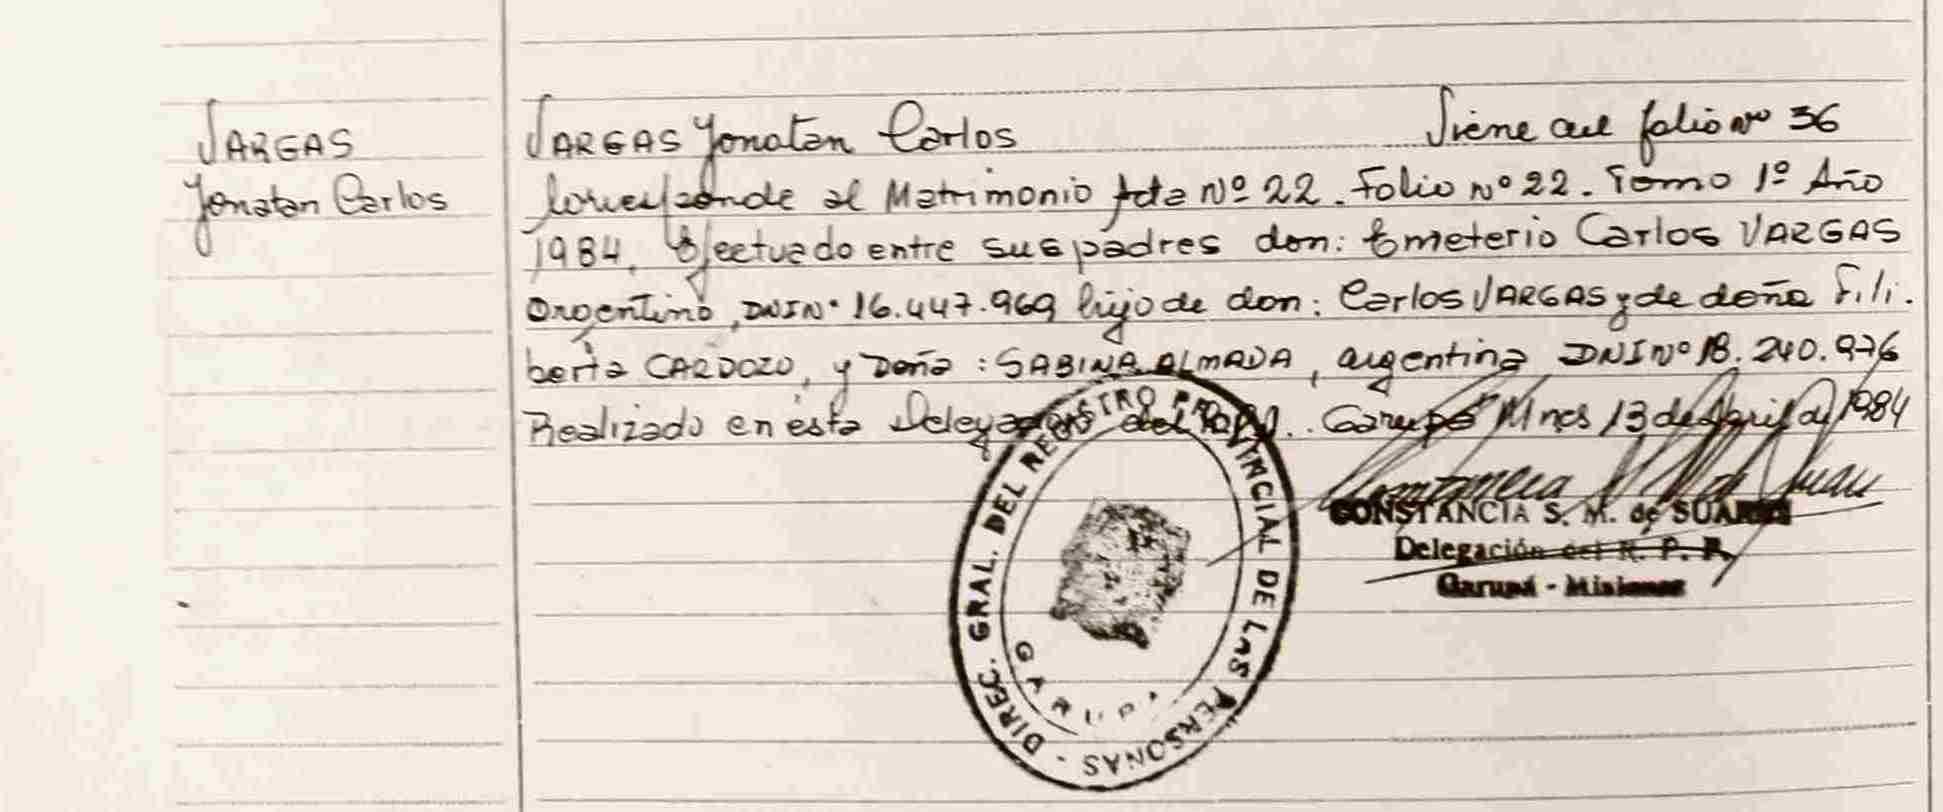 VARGAS
Yonatan Carlos
VARGAS Yonatan Carlos Viene del folio Nº 36
Corresponde al Matrimonio Acta Nº 22. Folio Nº 22. Tomo 1º Año
1984. Efectuado entre sus padres don: Emeterio Carlos VARGAS
Argentino, DNI Nº 16.447.969 hijo de don: Carlos VARGAS y de doña Fili.
berta CARDOZO, y Doña: SABINA ALMADA, argentina DNI Nº 18.240.976
Realizado en ésta Delegación del R.P.P. Garupá Mnes 13 de Abril de 1984
CONSTANCIA S. M. de SUAREZ
Delegación del R. P. P.
Garupá - Misiones
DIREC. GRAL. DEL REGISTRO PROVINCIAL DE LAS PERSONAS -
GARUPA